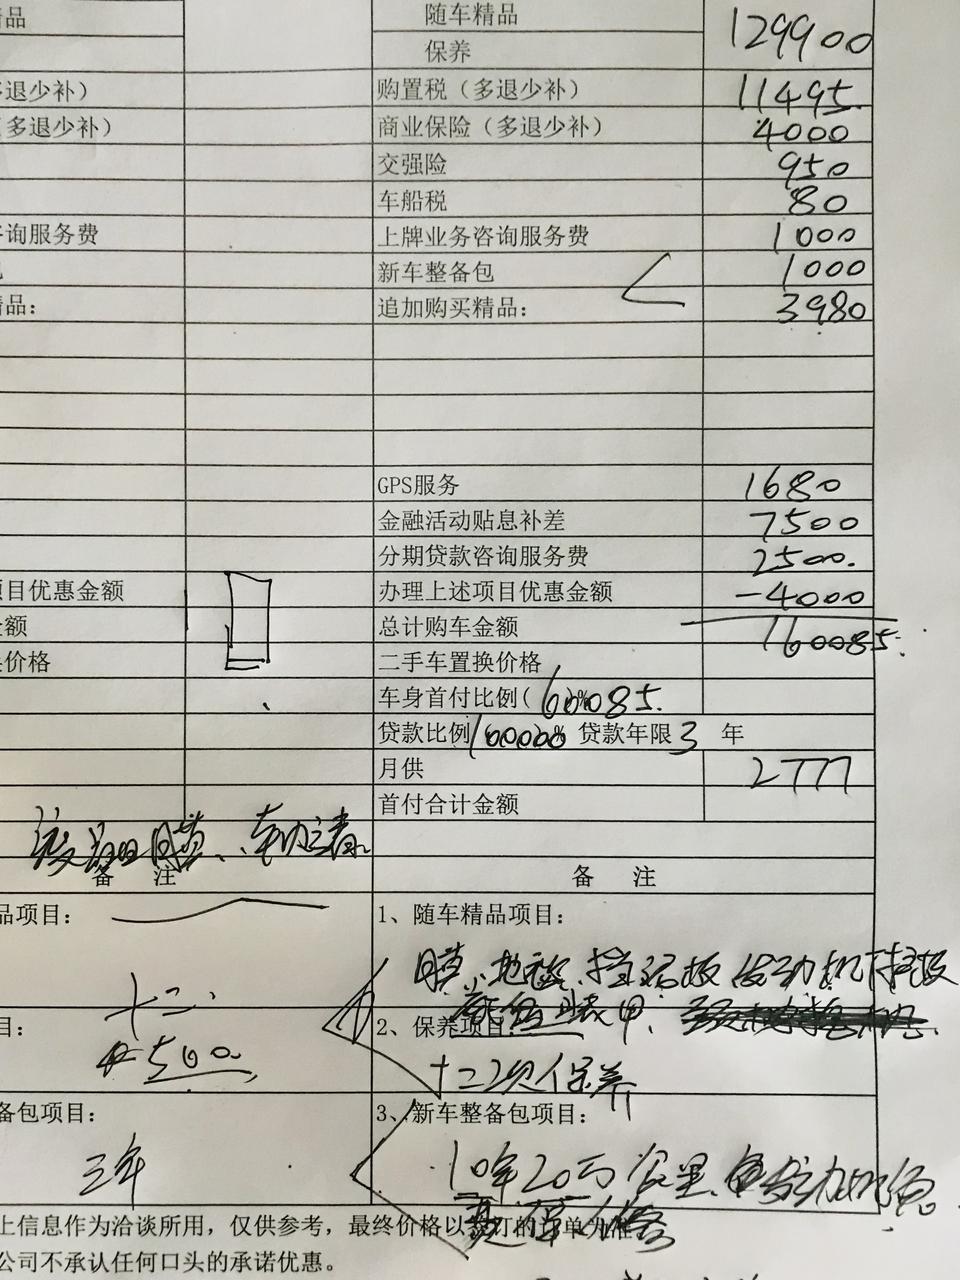 品
随车精品
129900
保养
退少补）
购置税（多退少补） 11495
多退少补）
商业保险（多退少补） 4000
交强险 950
车船税 80
询服务费
上牌业务咨询服务费 1000
新车整备包 1000
品：
追加购买精品： 3980
GPS服务 1680
金融活动贴息补差 7500
分期贷款咨询服务费 2500
项目优惠金额
办理上述项目优惠金额 -4000
金额
总计购车金额 160085
价格
二手车置换价格
车身首付比例（ 60085
贷款比例 100000 贷款年限 3 年
月供 2777
首付合计金额
备 注
备 注
品项目：
1、随车精品项目：
膜、地 挡泥板 发动机下护板
十二
装甲
目：
2、保养项目：
500
十二次保养
备包项目：
3、新车整备包项目：
三年
10年20万公里
上信息作为洽谈所用，仅供参考，最终价格以签订的订单为准
公司不承认任何口头的承诺优惠。